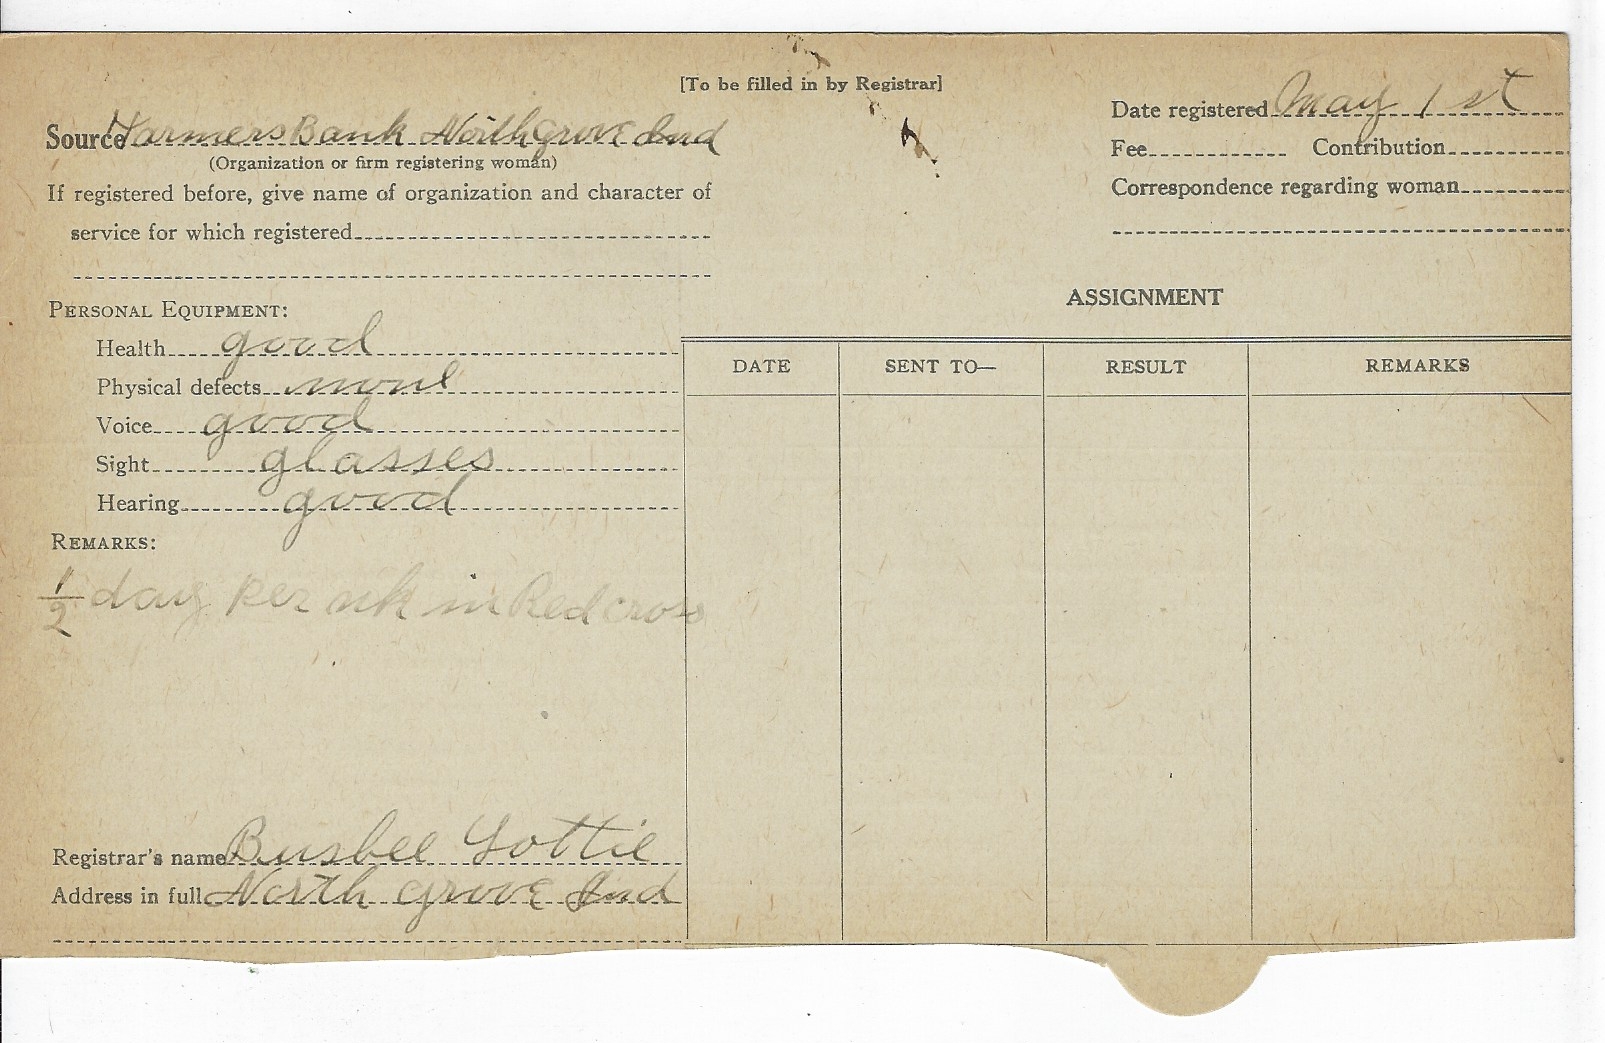 [To be filled in by Registrar]
Source Farmers Bank North Grove Ind
(Organization or firm registering woman)
If registered before, give name of organization and character of
service for which registered
Date registered May 1st
Fee Contribution
Correspondence regarding woman
PERSONAL EQUIPMENT:
Health good
Physical defects none
Voice good
Sight glasses
Hearing good
REMARKS:
1/2 day per wk in Red cross
Registrar's name Busbee Lottie
Address in full North Grove Ind
ASSIGNMENT
DATE SENT TO— RESULT REMARKS